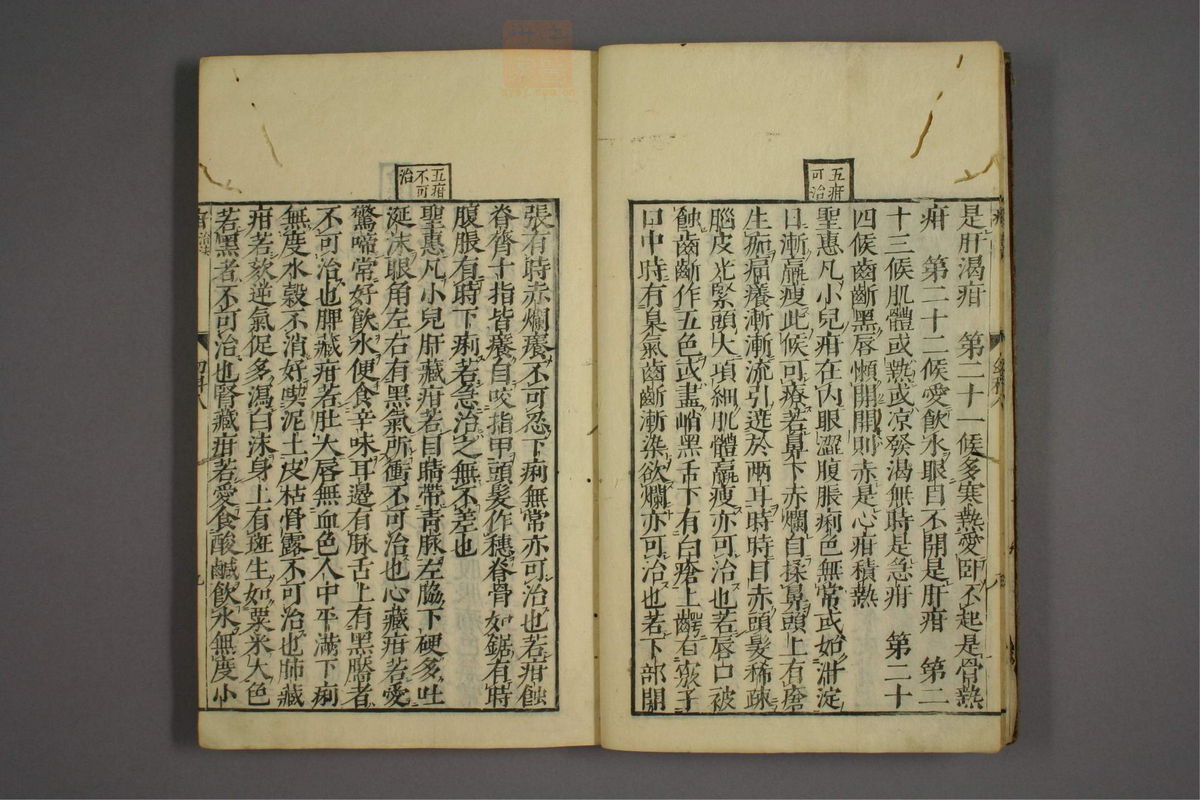 五疳
可治
是肝渴疳　第二十一候多寒熱愛臥不起是骨熱
疳　第二十二候愛飲水眼目不開是肝疳　第二
十三候肌體或熱或凉發渴無時是急疳　第二十
四候齒齗黑唇懶開開則赤是心疳積熱
聖惠凡小兒疳在内眼澀腹脹痢色無常或如泔淀
日漸羸瘦此候可療若鼻下赤爛自揉鼻頭上有瘡
生痂痛癢漸漸流引遶於兩耳時時目赤頭髮稀疎
腦皮光緊頭大項細肌體羸瘦亦可治也若唇口被
蝕齒齗作五色或盡峭黑舌下有白瘡上齶有竅子
口中時有臭氣齒齗漸染欲爛亦可治也若下部開
五疳
不可
治
張有時赤爛癢不可忍下痢無常亦可治也若疳蝕
脊膂十指皆癢自咬指甲頭髮作穗脊骨如鋸有時
腹脹有時下痢若急治之無不差也
聖惠凡小兒肝藏疳若目睛帶青脉左脇下硬多吐
涎沫眼角左右有黑氣所衝不可治也心藏疳若愛
驚啼常好飲水便食辛味耳邊有脉舌上有黑黶者
不可治也脾藏疳若肚大唇無血色人中平滿下痢
無度水穀不消好喫泥土皮枯骨露不可治也肺藏
疳若欬逆氣促多瀉白沫身上有斑生如粟米大色
若黑者不可治也腎藏疳若愛食酸鹹飲水無度小